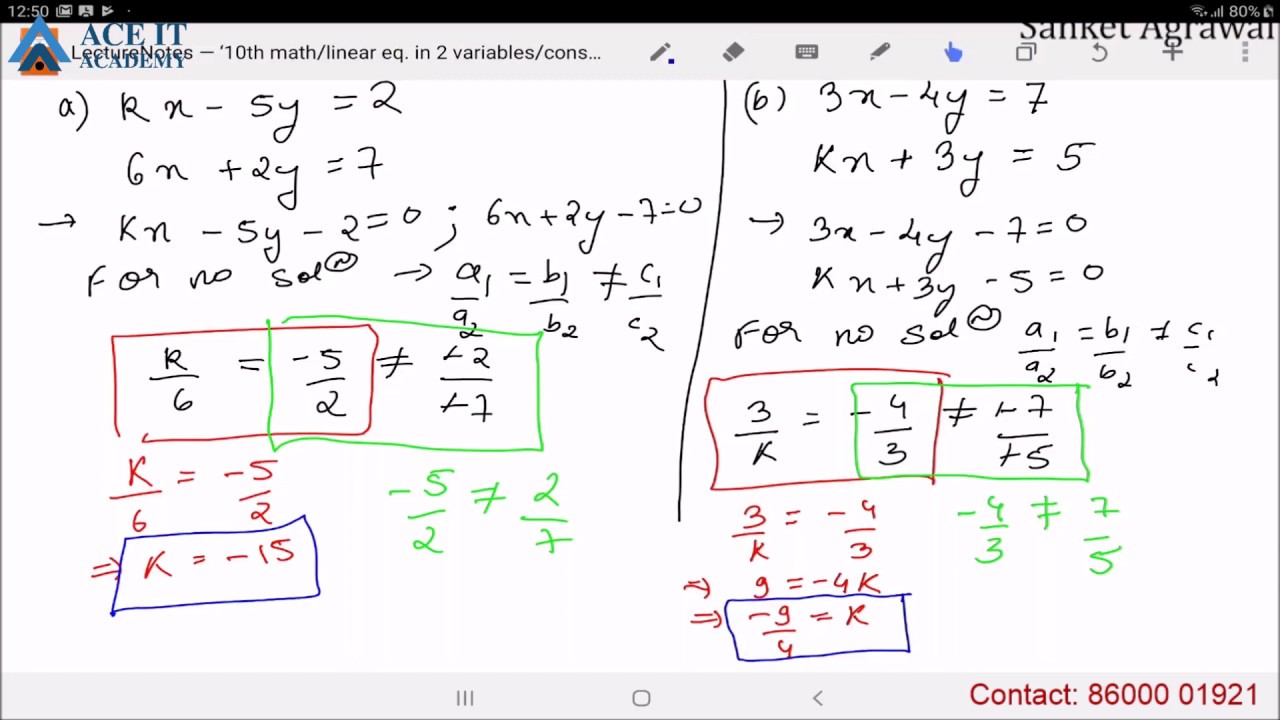 12:50
80%
Sanket Agrawal
ACE IT
ACADEMY
LectureNotes — '10th math/linear eq. in 2 variables/cons...
a) kx - 5y = 2
6x + 2y = 7
→ kx - 5y - 2 = 0 ; 6x + 2y - 7 = 0
For no solⁿ → a₁/a₂ = b₁/b₂ ≠ c₁/c₂
k/6 = -5/2 ≠ +2/+7
k/6 = -5/2
-5/2 ≠ 2/7
⇒ k = -15
(b) 3x - 4y = 7
kx + 3y = 5
→ 3x - 4y - 7 = 0
kx + 3y - 5 = 0
For no solⁿ a₁/a₂ = b₁/b₂ ≠ c₁/c₂
3/k = -4/3 ≠ +7/+5
3/k = -4/3
-4/3 ≠ 7/5
⇒ 9 = -4k
⇒ -9/4 = k
Contact: 86000 01921